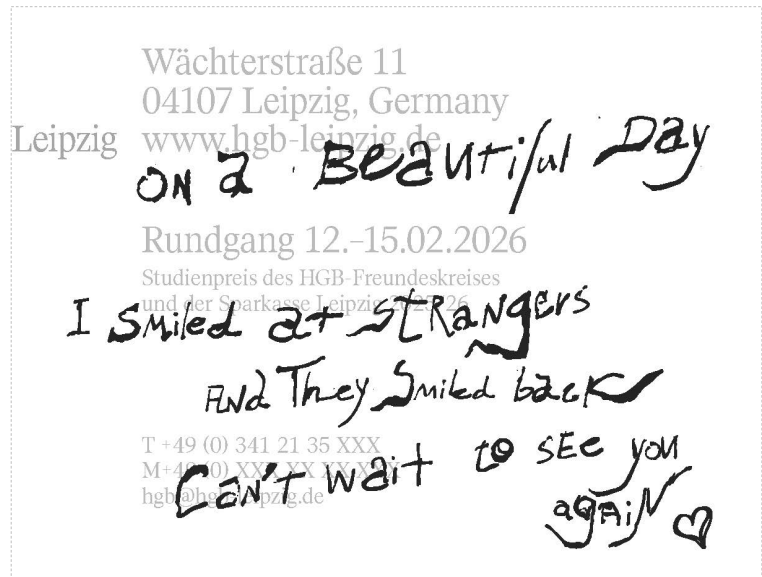 Wächterstraße 11
04107 Leipzig, Germany
Leipzig www.hgb-leipzig.de
ON a Beautiful Day
Rundgang 12.–15.02.2026
Studienpreis des HGB-Freundeskreises
und der Sparkasse Leipzig
I smiled at strangers
And They Smiled back
T +49 (0) 341 21 35 XXX
M+49 (0) XXX XX XX XXX
Can't wait to see you
hgb@hgb-leipzig.de
again ♡